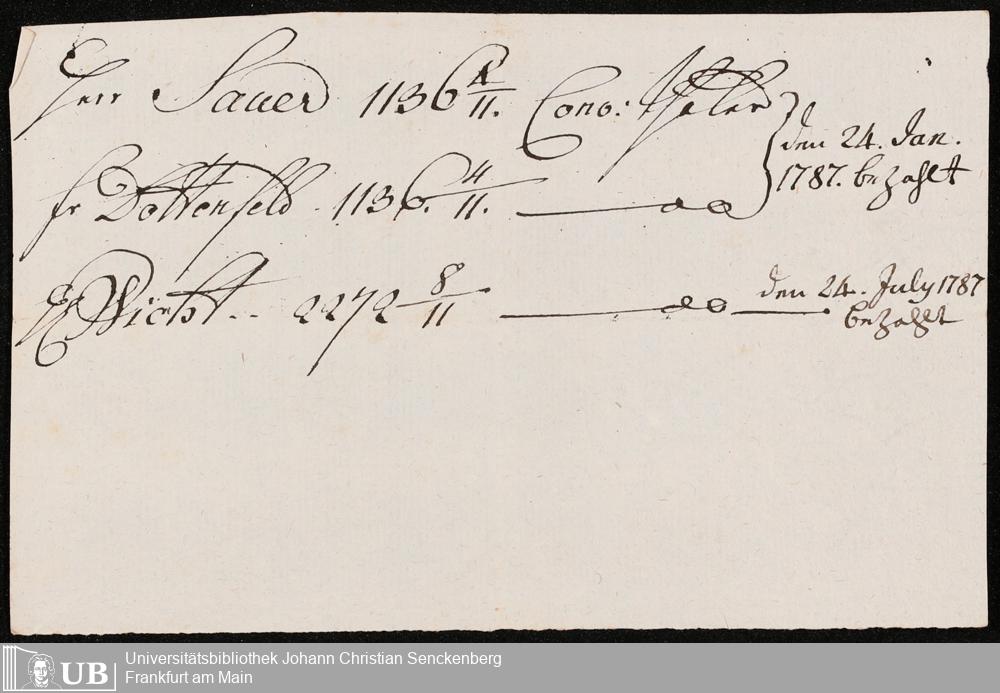 Herr Sauer 1136 4/11. Conv: Thaler
den 24. Jan.
1787. bezahlt
fr Dottenfeld. 1136. 4/11. do
Wicht.. 2272 8/11 do den 24. July 1787
bezahlt
UB Universitätsbibliothek Johann Christian Senckenberg
Frankfurt am Main